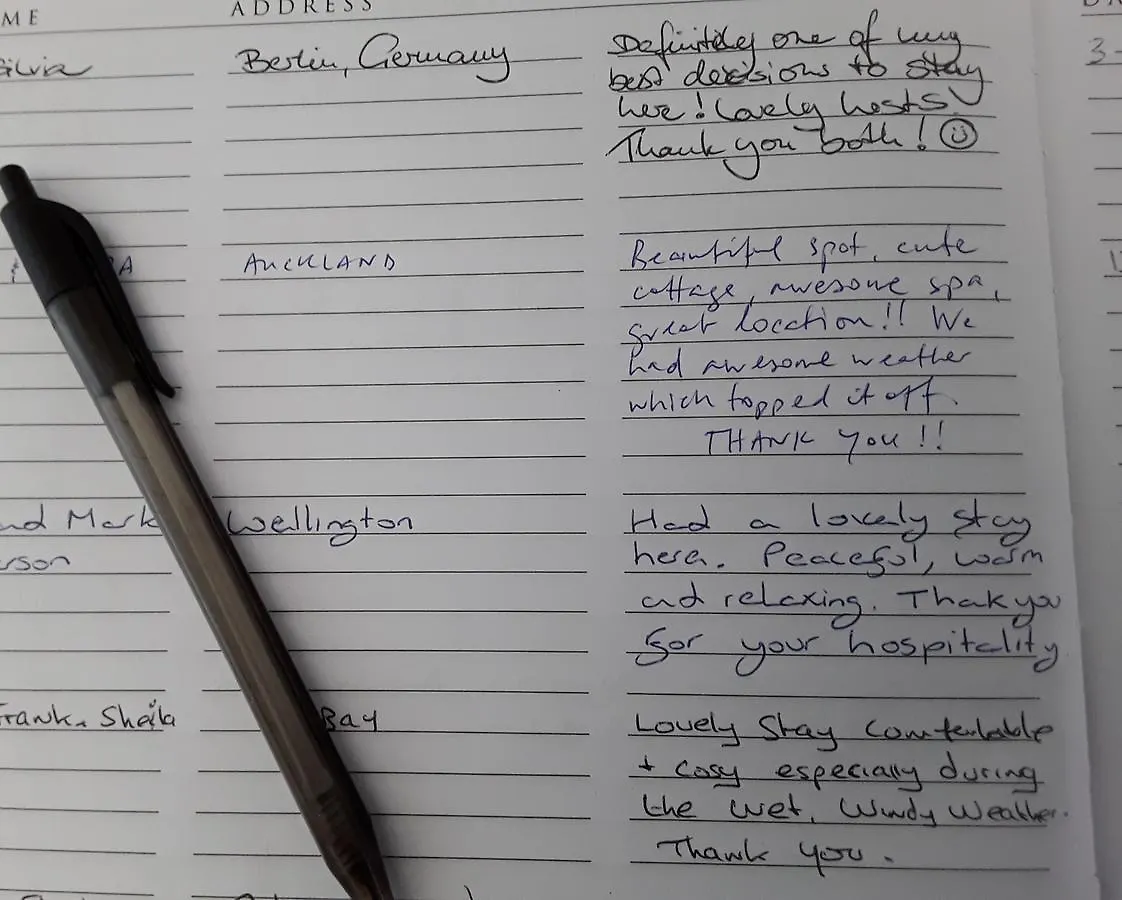 ME ADDRESS
Silvia Berlin, Germany Definitely one of my
best decisions to stay
here! Lovely hosts
Thank you both! ☺
3-
A AUCKLAND Beautiful spot, cute
cottage, awesome spa,
great location!! We
had awesome weather
which topped it off.
THANK YOU!!
nd Mark Wellington Had a lovely stay
erson here. Peaceful, warm
and relaxing. Thak you
for your hospitality
Frank & Sheila Bay Lovely Stay Comfertable
+ cosy especially during
the wet, Windy Weather.
Thank you.